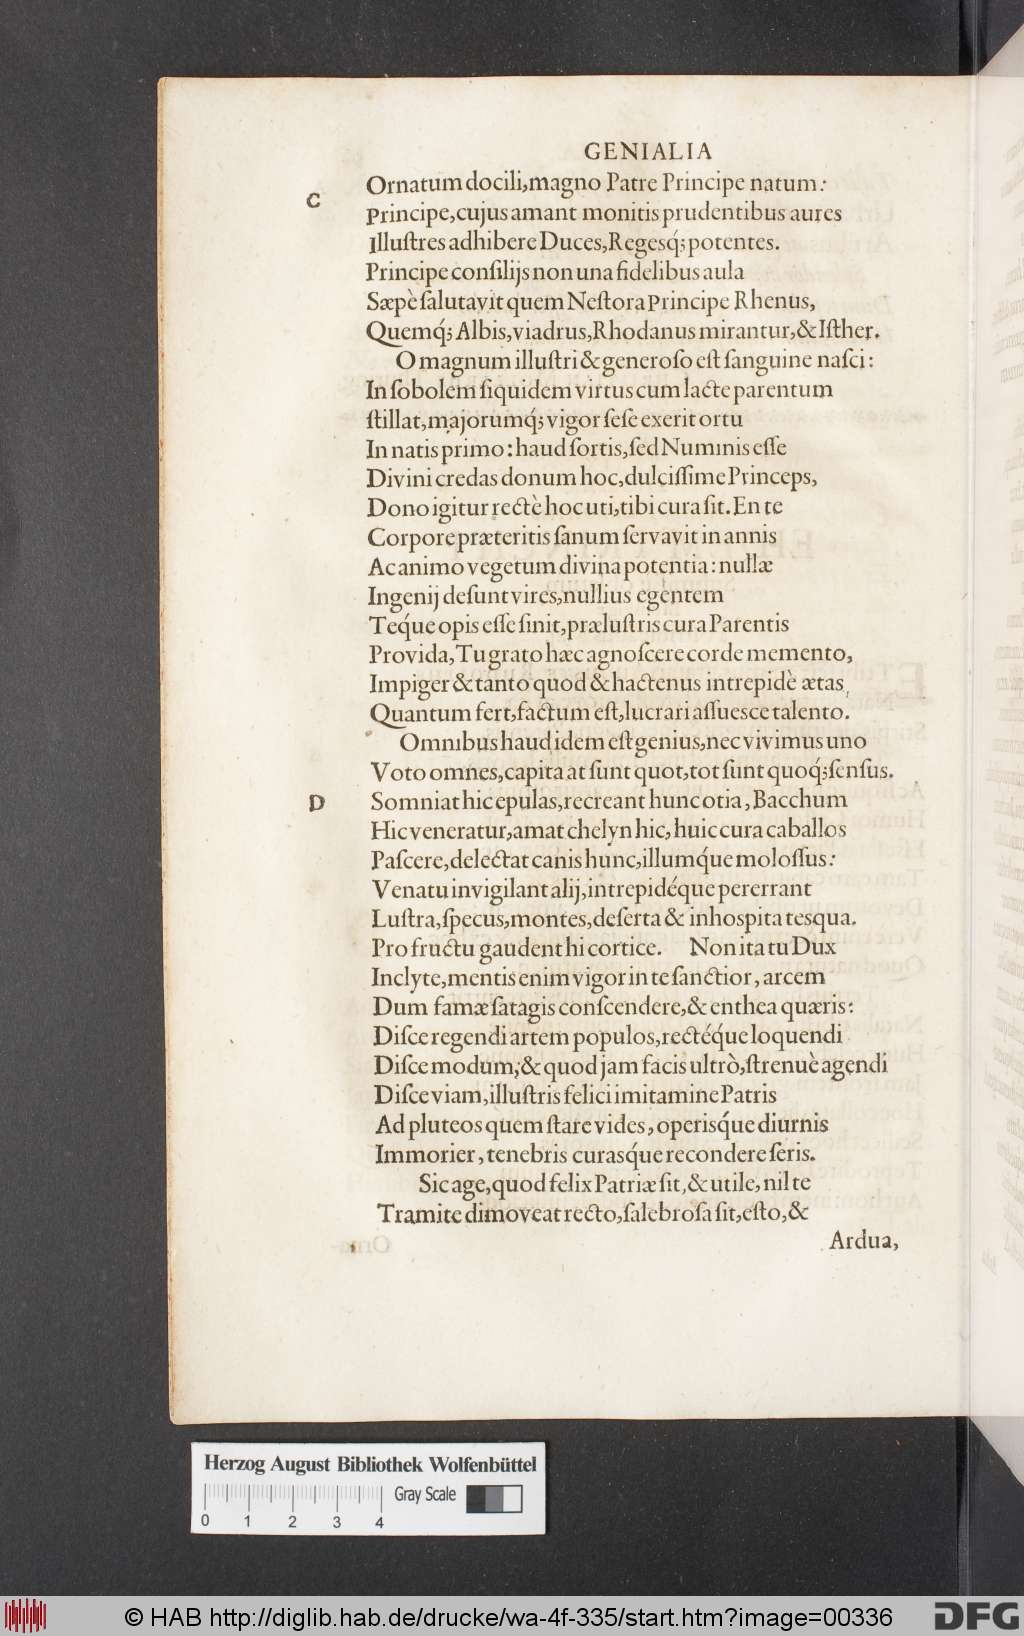 GENIALIA
Ornatum docili, magno Patre Principe natum:
C
Principe, cujus amant monitis prudentibus aures
Illuſtres adhibere Duces, Regesq́; potentes.
Principe conſilijs non una fidelibus aula
Sæpè ſalutavit quem Neſtora Principe Rhenus,
Quemq́; Albis, viadrus, Rhodanus mirantur, & Iſther.
O magnum illuſtri & generoſo eſt ſanguine naſci:
In ſobolem ſiquidem virtus cum lacte parentum
ſtillat, majorumq́; vigor ſeſe exerit ortu
In natis primo: haud ſortis, ſed Numinis eſſe
Divini credas donum hoc, dulciſſime Princeps,
Dono igitur rectè hoc uti, tibi cura ſit. En te
Corpore præteritis ſanum ſervavit in annis
Ac animo vegetum divina potentia: nullæ
Ingenij deſunt vires, nullius egentem
Teq́ue opis eſſe ſinit, præluſtris cura Parentis
Provida, Tu grato hæc agnoſcere corde memento,
Impiger & tanto quod & hactenus intrepidè ætas,
Quantum fert, factum eſt, lucrari aſſuesce talento.
Omnibus haud idem eſt genius, nec vivimus uno
Voto omnes, capita at ſunt quot, tot ſunt quoq́; ſenſus.
D
Somniat hic epulas, recreant hunc otia, Bacchum
Hic veneratur, amat chelyn hic, huic cura caballos
Paſcere, delectat canis hunc, illumq́ue moloſſus:
Venatu invigilant alij, intrepidéque pererrant
Luſtra, ſpecus, montes, deſerta & inhospita tesqua.
Pro fructu gaudent hi cortice. Non ita tu Dux
Inclyte, mentis enim vigor in te ſanctior, arcem
Dum famæ ſatagis conſcendere, & enthea quæris:
Diſce regendi artem populos, rectéq́ue loquendi
Diſce modum, & quod jam facis ultrò, ſtrenuè agendi
Diſce viam, illuſtris felici imitamine Patris
Ad pluteos quem ſtare vides, operisq́ue diurnis
Immorier, tenebris curasq́ue recondere ſeris.
Sic age, quod felix Patriæ ſit, & utile, nil te
Tramite dimoveat recto, ſalebroſa ſit, eſto, &
Ardua,
Herzog August Bibliothek Wolfenbüttel
Gray Scale
0 1 2 3 4
© HAB http://diglib.hab.de/drucke/wa-4f-335/start.htm?image=00336
DFG